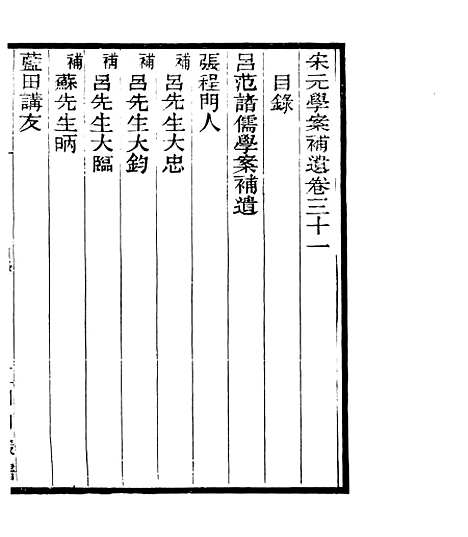 宋元學案補遺卷三十一
目錄
呂范諸儒學案補遺
張程門人
補呂先生大忠
補呂先生大鈞
補呂先生大臨
補蘇先生昞
藍田講友